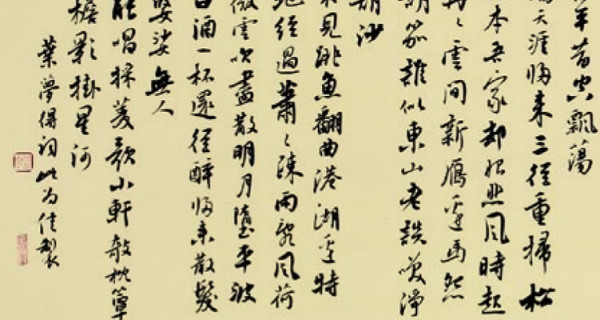 平昔空飄蕩
天涯歸來三徑重掃松
本吾家却恨悲風時起
冉々雲間新雁邊馬怨
胡笳誰似東山老談笑淨
胡沙
不見跳魚翻曲港湖邊特
地經過蕭々疎雨亂風荷
微雲吹盡散明月墮平波
白酒一杯還徑醉歸來散髮
婆娑無人
能唱採菱歌小軒欹枕簟
檐影掛星河
葉夢得詞此為佳製